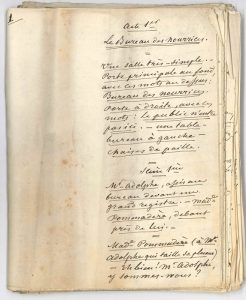 1
Acte 1er
Le Bureau des nourrices.
Une salle très-simple. -
Porte principale au fond
avec ces mots au dessus:
Bureau des nourrices
Porte à droite, avec ces
mots: le public n'entre
pas ici. - une table-
bureau à gauche -
chaises de paille.
Scène 1re
Mr Adolphe, assis au
bureau devant un
grand registre - Made
Pommadère, debout
près de lui. -
Made Pommadère (à Mr
Adolphe qui taille sa plume)
- Eh bien! Mr Adolphe,
y sommes-nous?